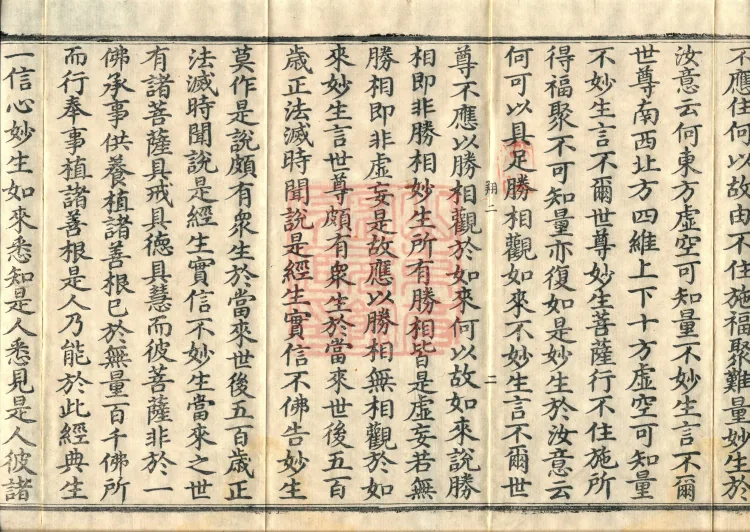 不應住何以故由不住施福聚難量妙生於
汝意云何東方虛空可知量不妙生言不爾
世尊南西北方四維上下十方虛空可知量
不妙生言不爾世尊妙生菩薩行不住施所
得福聚不可知量亦復如是妙生於汝意云
何可以具足勝相觀如來不妙生言不爾世
翔二 二
尊不應以勝相觀於如來何以故如來說勝
相即非勝相妙生所有勝相皆是虛妄若無
勝相即非虛妄是故應以勝相無相觀於如
來妙生言世尊頗有衆生於當來世後五百
歲正法滅時聞說是經生實信不佛告妙生
莫作是說頗有衆生於當來世後五百歲正
法滅時聞說是經生實信不妙生當來之世
有諸菩薩具戒具德具慧而彼菩薩非於一
佛承事供養植諸善根已於無量百千佛所
而行奉事植諸善根是人乃能於此經典生
一信心妙生如來悉知是人悉見是人彼諸